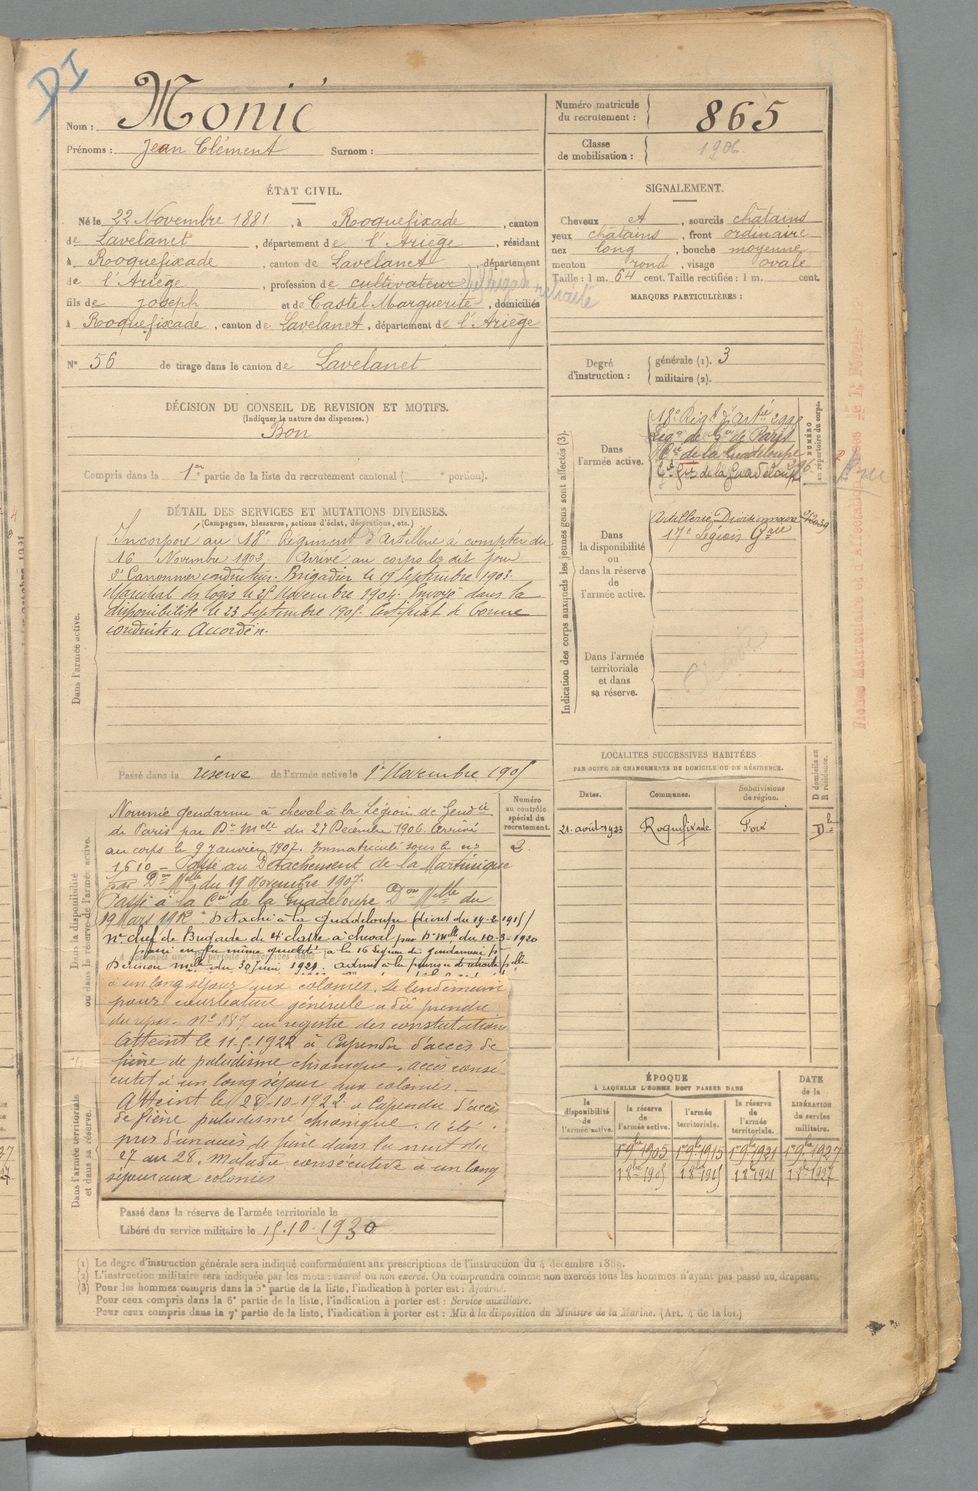 DI
Nom : Monié
Prénoms : Jean Clément Surnom :
Numéro matricule du recrutement : 865
Classe de mobilisation : 1906
ÉTAT CIVIL.
Né le 22 Novembre 1881, à Rooquefixade, canton
de Lavelanet, département de l'Ariège, résidant
à Rooquefixade, canton de Lavelanet, département
de l'Ariège, profession de cultivateur retraité
fils de Joseph et de Castel Marguerite, domiciliés
à Roquefixade, canton de Lavelanet, département de l'Ariège
N° 56 de tirage dans le canton de Lavelanet
SIGNALEMENT.
Cheveux et, sourcils châtains
yeux châtains, front ordinaire
nez long, bouche moyenne
menton rond, visage ovale
Taille : 1 m. 64 cent. Taille rectifiée : 1 m. cent.
MARQUES PARTICULIÈRES :
Degré d'instruction : générale (1). 3
militaire (2).
DÉCISION DU CONSEIL DE REVISION ET MOTIFS.
(Indiquer la nature des dispenses.)
Bon
Compris dans la 1re partie de la liste du recrutement cantonal ( portion).
DÉTAIL DES SERVICES ET MUTATIONS DIVERSES.
(Campagnes, blessures, actions d'éclat, décorations, etc.)
Dans l'armée active.
Incorporé au 18e Régiment d'Artillerie à compter du
16 Novembre 1903, Arrivé au corps le dit jour
2e Canonnier conducteur. Brigadier le 19 Septembre 1903.
Maréchal des logis le 25 Novembre 1904. Envoyé dans la
disponibilité le 23 Septembre 1905. Certificat de bonne
conduite "Accordé".
Passé dans la réserve de l'armée active le 1er Novembre 1905
Indication des corps auxquels les jeunes gens sont affectés (3).
NUMÉRO au répertoire du corps.
Dans l'armée active.
18e Régt d'Artie
Légon de Gie de Paris
Cie de la Guadeloupe
de la Guadeloupe
Dans la disponibilité ou dans la réserve de l'armée active.
Artillerie Divisionnaire
17e Légion Grie
Dans l'armée territoriale et dans sa réserve.
LOCALITÉS SUCCESSIVES HABITÉES
PAR SUITE DE CHANGEMENTS DE DOMICILE OU DE RÉSIDENCE.
Dates. Communes. Subdivisions de région. D domicile ou R résidence.
21 août 1923 Roquefixade Foix D
Dans la disponibilité ou dans la réserve de l'armée active.
Numéro au contrôle spécial du recrutement.
Nommé gendarme à cheval à la Légion de Gendie
de Paris par Don Melle du 27 Décembre 1906. Arrivé
au corps le 9 Janvier 1907. Immatriculé sous le no
1610 — Passé au Détachement de la Martinique
par Don Melle du 19 Novembre 1907.
Passé à la Cie de la Guadeloupe Don Melle du
19 Mars 1912
Détaché à la Guadeloupe
Né chef de Brigade de 4e classe à cheval par Don Melle du 10-3-1920
Décision Melle du 30 Juin
à un long séjour aux colonies. Le lendemain
pour courbature générale a dû prendre
du repos. No 187 au registre des constatations
Atteint le 11-5-1922 à Capendu d'accès de
fièvre de paludisme chronique. Accès consé
cutif à un long séjour aux colonies. —
Atteint le 28-10-1922 à Capendu d'accès
de fièvre paludisme chronique. A été
pris d'un accès de fièvre dans la nuit du
27 au 28. Maladie consécutive à un long
séjour aux colonies
Dans l'armée territoriale et dans sa réserve.
Passé dans la réserve de l'armée territoriale le
Libéré du service militaire le 15.10.1930
ÉPOQUE
À LAQUELLE L'HOMME DOIT PASSER DANS
la disponibilité de l'armée active. la réserve de l'armée active. l'armée territoriale. la réserve de l'armée territoriale. DATE de la LIBÉRATION du service militaire.
1er 9bre 1905 1er 9bre 1915 1er 9bre 1921 1er 9bre 1927
1 8bre 1905 1 8bre 1915 1 8bre 1921 1 8bre 1927
(1) Le degré d'instruction générale sera indiqué conformément aux prescriptions de l'instruction du 4 décembre 1889.
(2) L'instruction militaire sera indiquée par les mots : exercé ou non exercé. On comprendra comme non exercés tous les hommes n'ayant pas passé au drapeau.
(3) Pour les hommes compris dans la 5e partie de la liste, l'indication à porter est : Ajourné.
Pour ceux compris dans la 6e partie de la liste, l'indication à porter est : Service auxiliaire.
Pour ceux compris dans la 7e partie de la liste, l'indication à porter est : Mis à la disposition du Ministre de la Marine. (Art. 4 de la loi.)